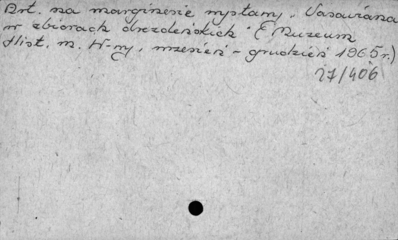 Art. na marginesie wystawy „Vasariana
w zbiorach drezdeńskich" (Muzeum
Hist. m. W-wy, wrzesień - grudzień 1965 r.)
27/406